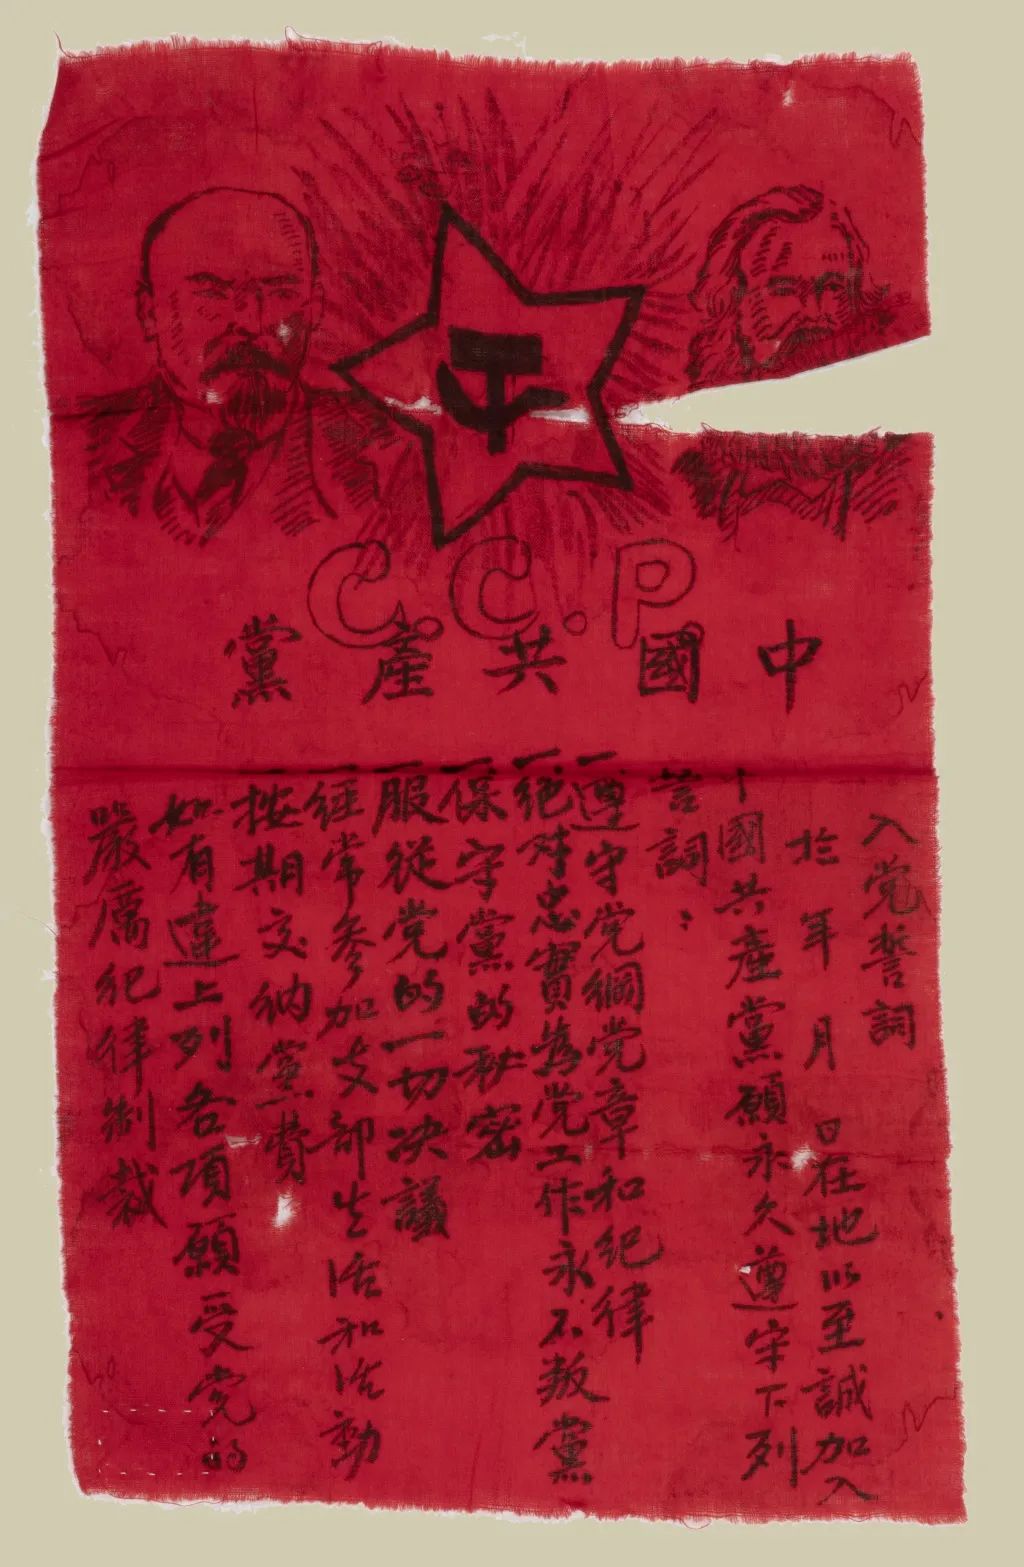 C.C.P.
中國共產黨
入党誓詞
於 年 月 日在地以至誠加入
中國共產黨願永久遵守下列
誓詞：
一遵守党綱党章和紀律
一絕对忠實為党工作永不叛黨
一保守黨的秘密
一服從党的一切决議
一經常参加支部生活和活動
一按期交纳黨費
如有違上列各項願受党的
嚴厲纪律制裁